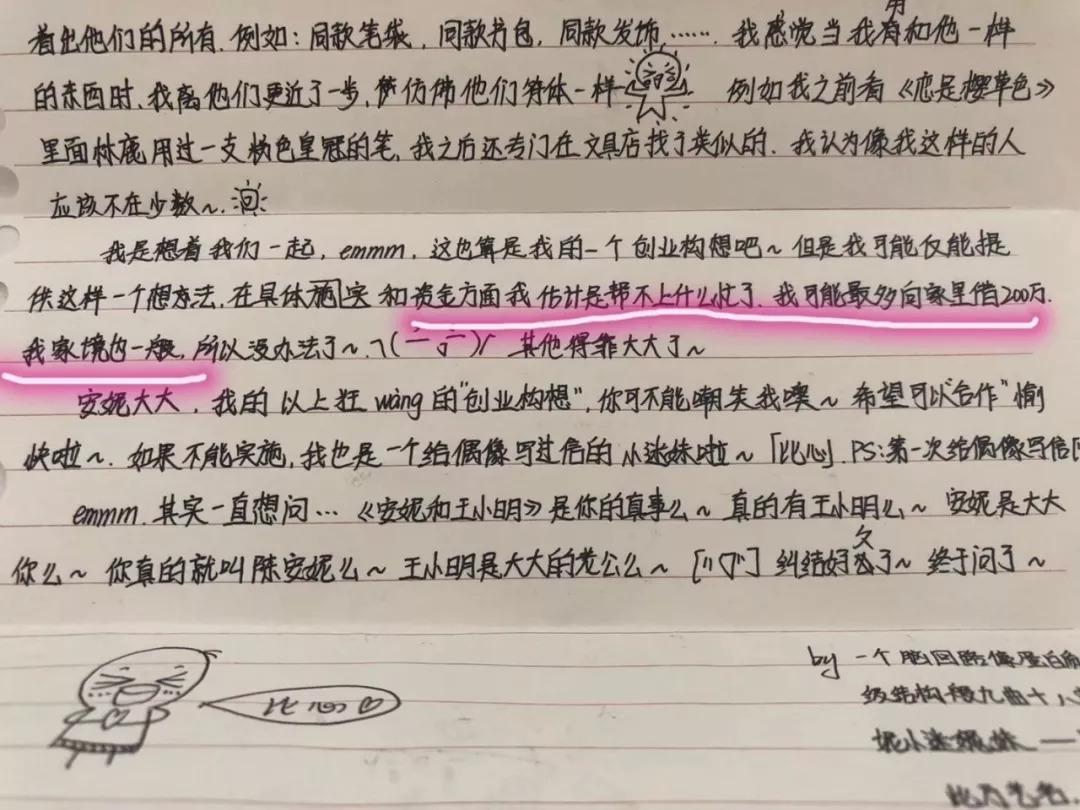 着出他们的所有. 例如：同款笔袋，同款书包，同款发饰……. 我感觉当我有用和他一样
的东西时，我离他们更近了一步，仿佛他们穿体一样 例如我之前看《恋是樱草色》
里面林鹿用过一支粉色皇冠的笔，我之后还专门在文具店找了类似的. 我认为像我这样的人
应该不在少数~.
我是想着我们一起，emmm，这也算是我的一个创业构想吧~ 但是我可能仅能提
供这样一个想方法，在具体施实和资金方面我估计是帮不上什么忙了. 我可能最多向家里借200万.
我家境也一般，所以没办法了~. 其他得靠大大了~
安妮大大，我的以上狂wàng的"创业构想"，你可不能嘲笑我噢~ 希望可以"合作"愉
快啦~. 如果不能实施，我也是一个给偶像写过信的小迷妹啦~「比心」. PS：第一次给偶像写信
emmm. 其实一直想问…《安妮和王小明》是你的真事么~ 真的有王小明么~ 安妮是大大
你么~ 你真的就叫陈安妮么~ 王小明是大大的老公么~ 纠结好久了~ 终于问了~
比心♡
by 一个脑回路像蛋白质
级结构般九曲十八
妮小迷妹